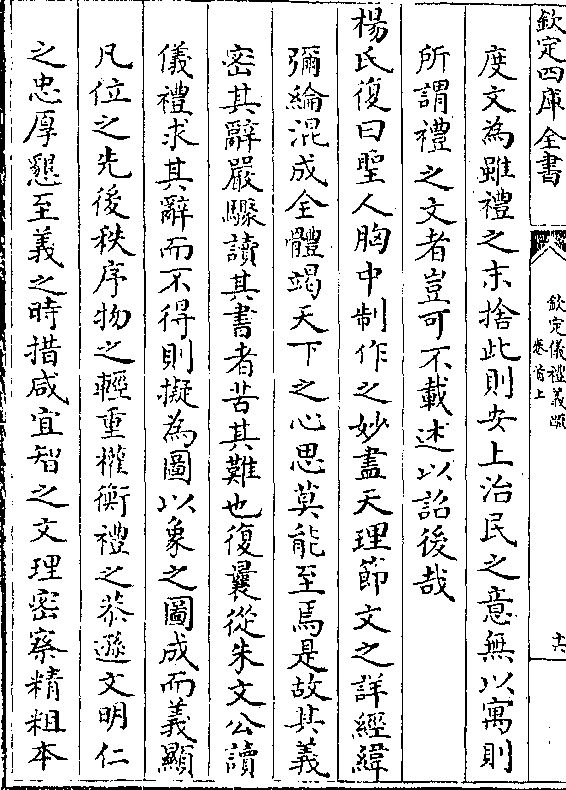 欽定四庫全書
欽定儀禮義疏
卷首上
十六
度文為雖禮之末捨此則安上治民之意無以寓則
所謂禮之文者豈可不載述以詔後哉
楊氏復曰聖人胸中制作之妙盡天理節文之詳經緯
彌綸混成全體竭天下之心思莫能至焉是故其義
密其辭嚴驟讀其書者苦其難也復曩從朱文公讀
儀禮求其辭而不得則擬為圖以象之圖成而義顯
凡位之先後秩序物之輕重權衡禮之恭遜文明仁
之忠厚懇至義之時措咸宜智之文理密察精粗本